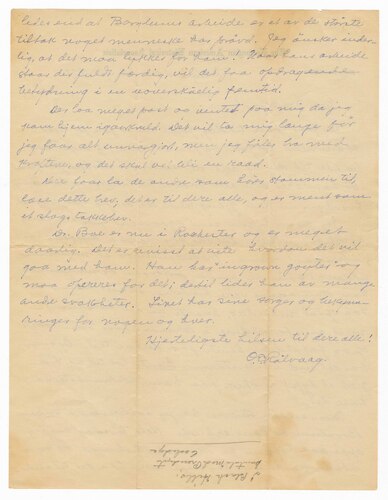 at Borglums arbeide er et av de største
tiltak noget menneske har vaard. Jeg ønsker inder-
lig, at det maa lykkes for ham! Naar hans arbeide
staar der fuldt færdig, vil det faa
betydning i en uoverskuelig fremtid.
Der laa meget post og ventet paa mig da jeg
kom hjem igaarkveld. Det vil ta mig længe før
jeg faar alt unnagjort, men jeg føler ba med
kræftene, og det skal vel bli en raad.
Kjære lat de andre som
læse dette brev, det er til dere alle, og er ment som
et slags takkebrev.
Dr. Boe er nu i Rochester og er meget
daarlig. Det er uvisst at vite hvordan det vil
gaa med ham. Han har "ingrown goiter" og
maa opereres for det; dertil lider han av mange
andre svakheter. Livet har sine sorger og
ringer for nogen og hver.
Hjerteligste hilsen til dere alle!
O. E. Rölvaag.
I Black Hills.
Coolidge